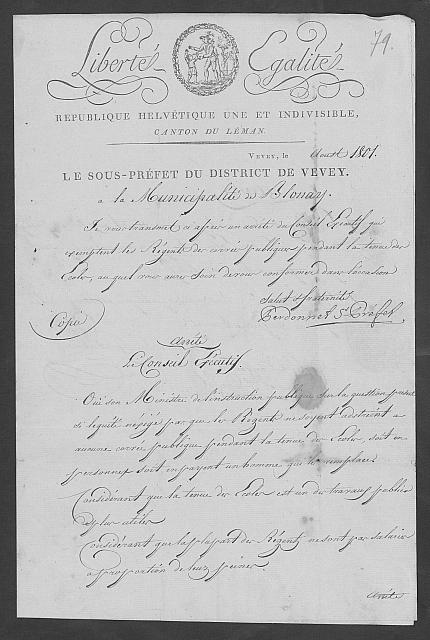 Liberté Egalité
79.
REPUBLIQUE HELVÉTIQUE UNE ET INDIVISIBLE,
CANTON DU LÉMAN.
VEVEY, le Aoust 1801.
LE SOUS-PRÉFET DU DISTRICT DE VEVEY.
a la Municipalité de Blonay.
Je vous transmet ci après un arrêté du Conseil Exécutif qui
exemptent les Régents des corvées publiques pendant la tenue des
Ecoles, auquel vous aurez soin de vous conformer dans l'occasion
Salut & fraternité
Perdonnet S. Préfet.
Copie
Arrêté
Le Conseil Exécutif.
Oui son Ministre de l'instruction publique sur la question
si l'equité n'éxige pas que les Regents ne soyent astreint a
aucune corvée publique pendant la tenue des Ecoles, soit en
personnes soit en payent un homme que les remplace.
Considérant que la tenue des Ecoles est un des travaux publics
les plus utiles
Considérant que la plupart des Régents ne sont pas salariés
a proportion de leurs peines.
Arrête